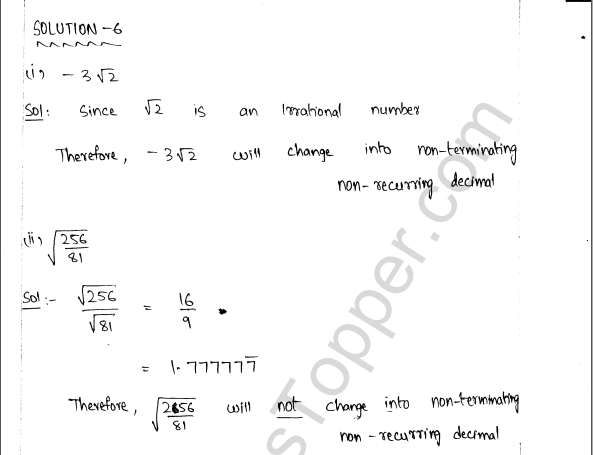 SOLUTION -6
(i) - 3√2
Sol: Since √2 is an Irrational number
Therefore, - 3√2 will change into non-terminating
non-recurring decimal
(ii) √(256/81)
Sol:- √256/√81 = 16/9
= 1.777777̅
Therefore, √(256/81) will not change into non-terminating
non-recurring decimal
sTopper.com